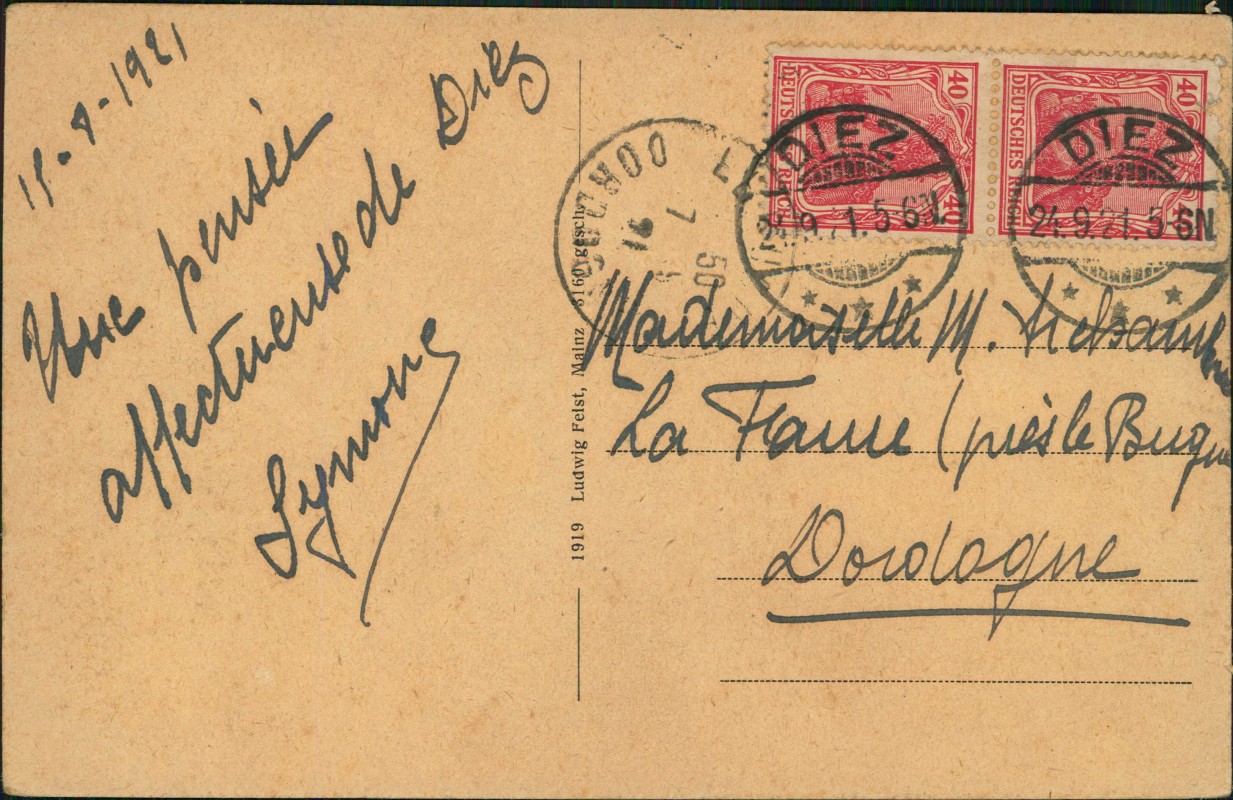 1921
Une pensée
affectueuse de Diez
Symone
1919 Ludwig Feist, Mainz 5160 gesch.
40 DEUTSCHES REICH 40
40 DEUTSCHES REICH 40
DIEZ
24.9.21.5-6N.
DIEZ
24.9.21.5-6N.
LE
DORDOGNE
7 50
Mademoiselle M.
La Faure (près le Bugue
Dordogne